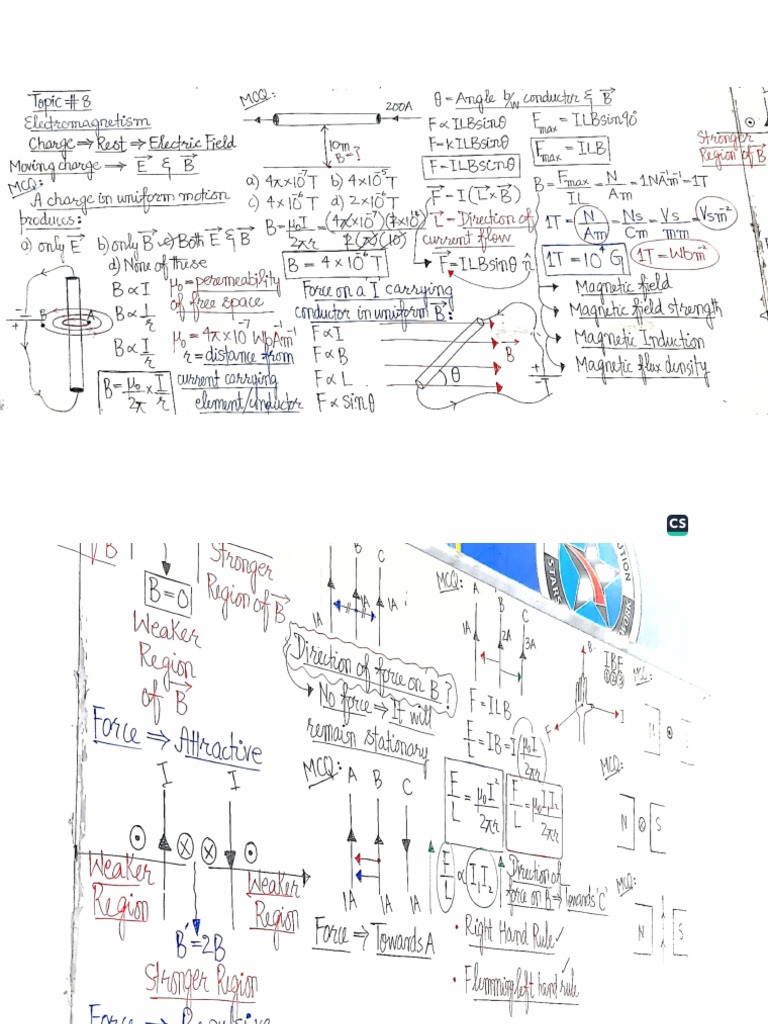 Topic # 8
Electromagnetism
Charge ⇒ Rest ⇒ Electric Field
Moving charge → E⃗ & B⃗
MCQ:
A charge in uniform motion
produces:
a) only E⃗ b) only B⃗ c) Both E⃗ & B⃗
d) None of these
B ∝ I
B ∝ 1/r
B ∝ I/r
B = μ₀/2π × I/r
B A
μ₀ = permeability
of free space
μ₀ = 4π×10⁻⁷ WbA⁻¹m⁻¹
r = distance from
current carrying
element/conductor
MCQ:
200A
10m
B = ?
a) 4π×10⁻⁷T b) 4×10⁻⁵T
c) 4×10⁻⁶T d) 2×10⁻⁶T
B = μ₀I/2πr
B = 4×10⁻⁶T
Force on a 'I' carrying
conductor in uniform B⃗:
F ∝ I
F ∝ B
F ∝ L
F ∝ sinθ
θ = Angle b/w conductor & B⃗
F ∝ ILBsinθ
F = kILBsinθ
F = ILBsinθ
F⃗ = I(L⃗×B⃗)
L⃗ - Direction of
current flow
F⃗ = ILBsinθ n̂
B⃗
θ
Fmax = ILBsin90°
Fmax = ILB
B = Fmax/IL = N/Am = 1NA⁻¹m⁻¹ = 1T
1T = N/Am = Ns/Cm = Vs/m·m = Vsm⁻²
1T = 10⁴ G
1T = Wbm⁻²
Magnetic field
Magnetic field strength
Magnetic Induction
Magnetic flux density
Stronger
Region of B⃗
CS
B = 0
Weaker
Region
of B⃗
Stronger
Region of B⃗
Force ⇒ Attractive
I I
Weaker
Region
Weaker
Region
B' = 2B
Stronger Region
Force ⇒ Repulsive
B C
1A 1A 1A
Direction of force on B?
No force ⇒ It will
remain stationary
MCQ:
A B C
1A 1A 1A
Force ⇒ Towards A
MCQ:
A B C
1A 2A 3A
F = ILB
F/L = IB = I(μ₀I/2πr)
F/L = μ₀I²/2πr
F/L = μ₀I₁I₂/2πr
F/L ∝ I₁I₂
Direction of
force on B → Towards 'C'
• Right Hand Rule
• Flemming left hand rule
B
F I
IBF
MCQ:
N
MCQ:
N S
MCQ:
N S
STAR